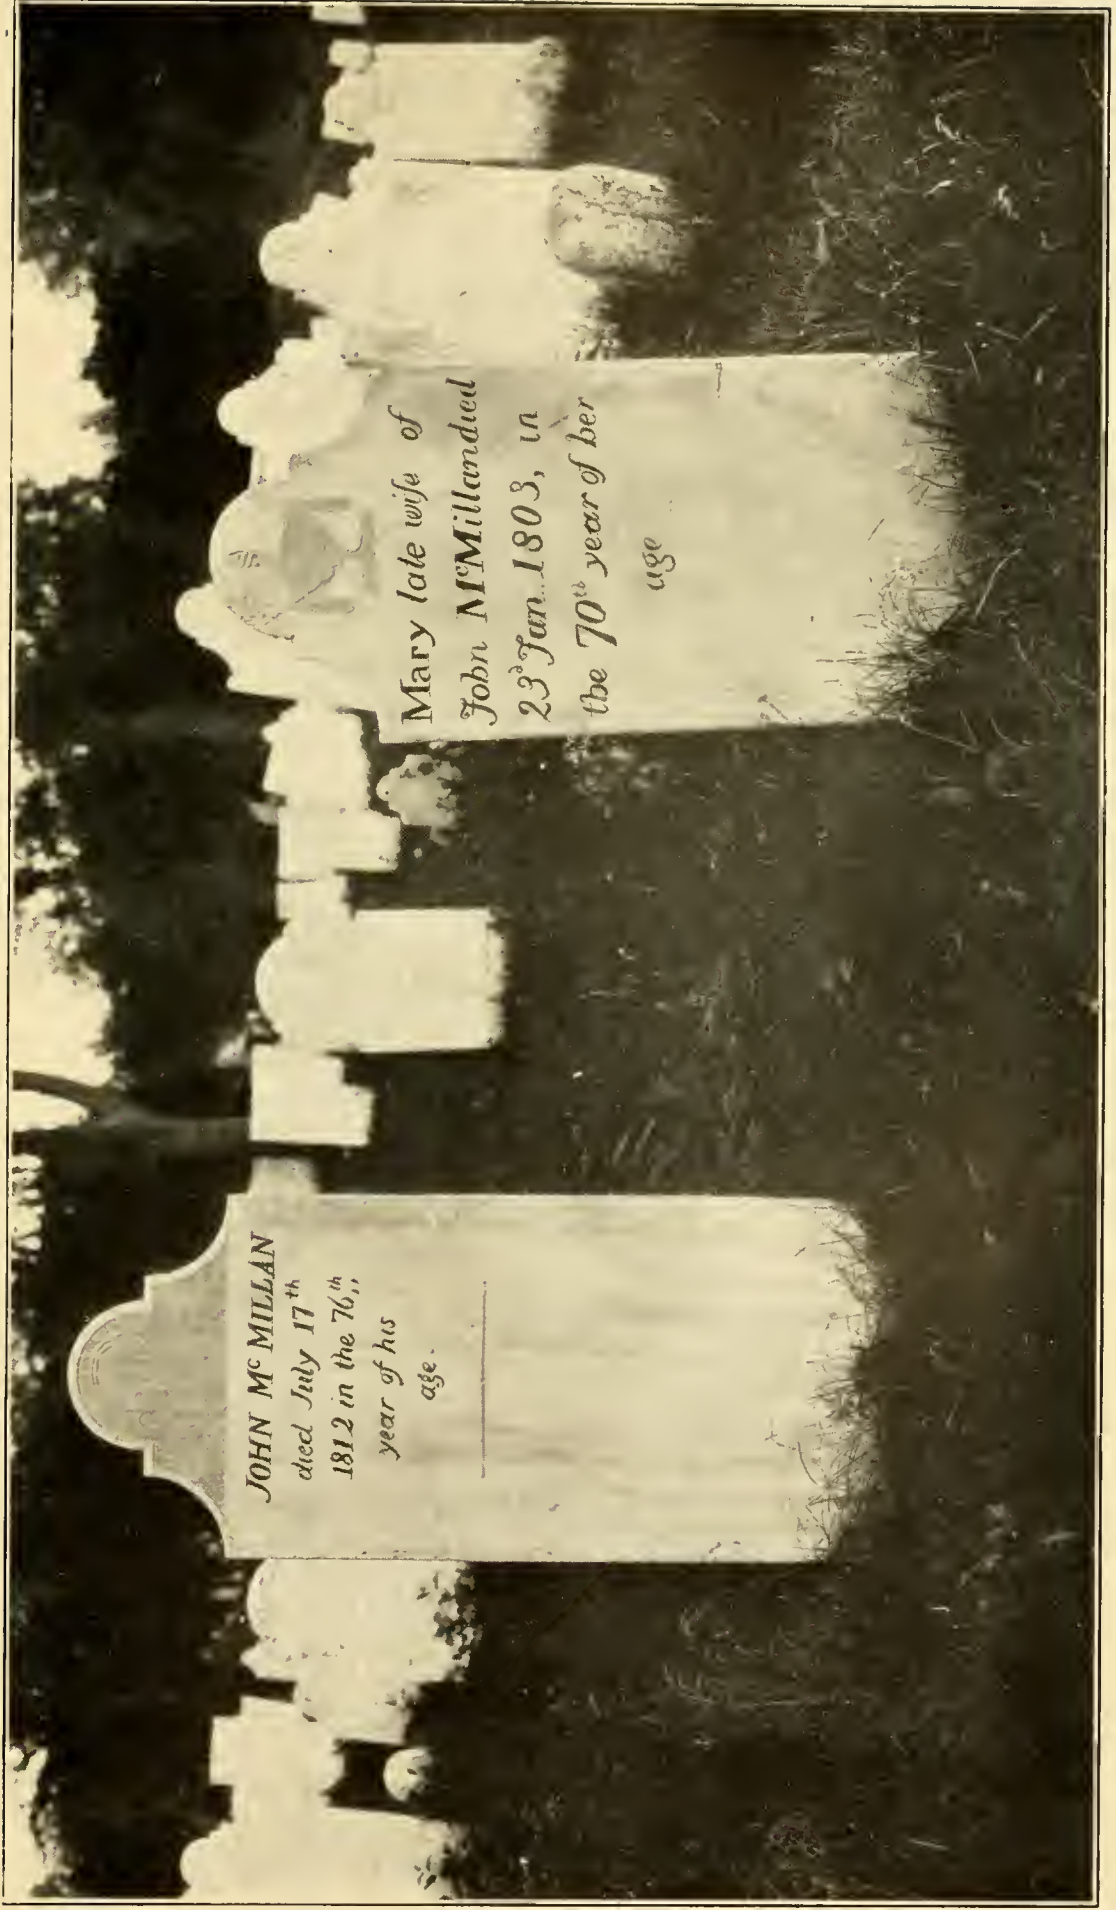 JOHN Mc MILLAN
died July 17th
1812 in the 76th,,
year of his
age.
Mary late wife of
John McMillan died
23d Jan.. 1803, in
the 70th year of her
age